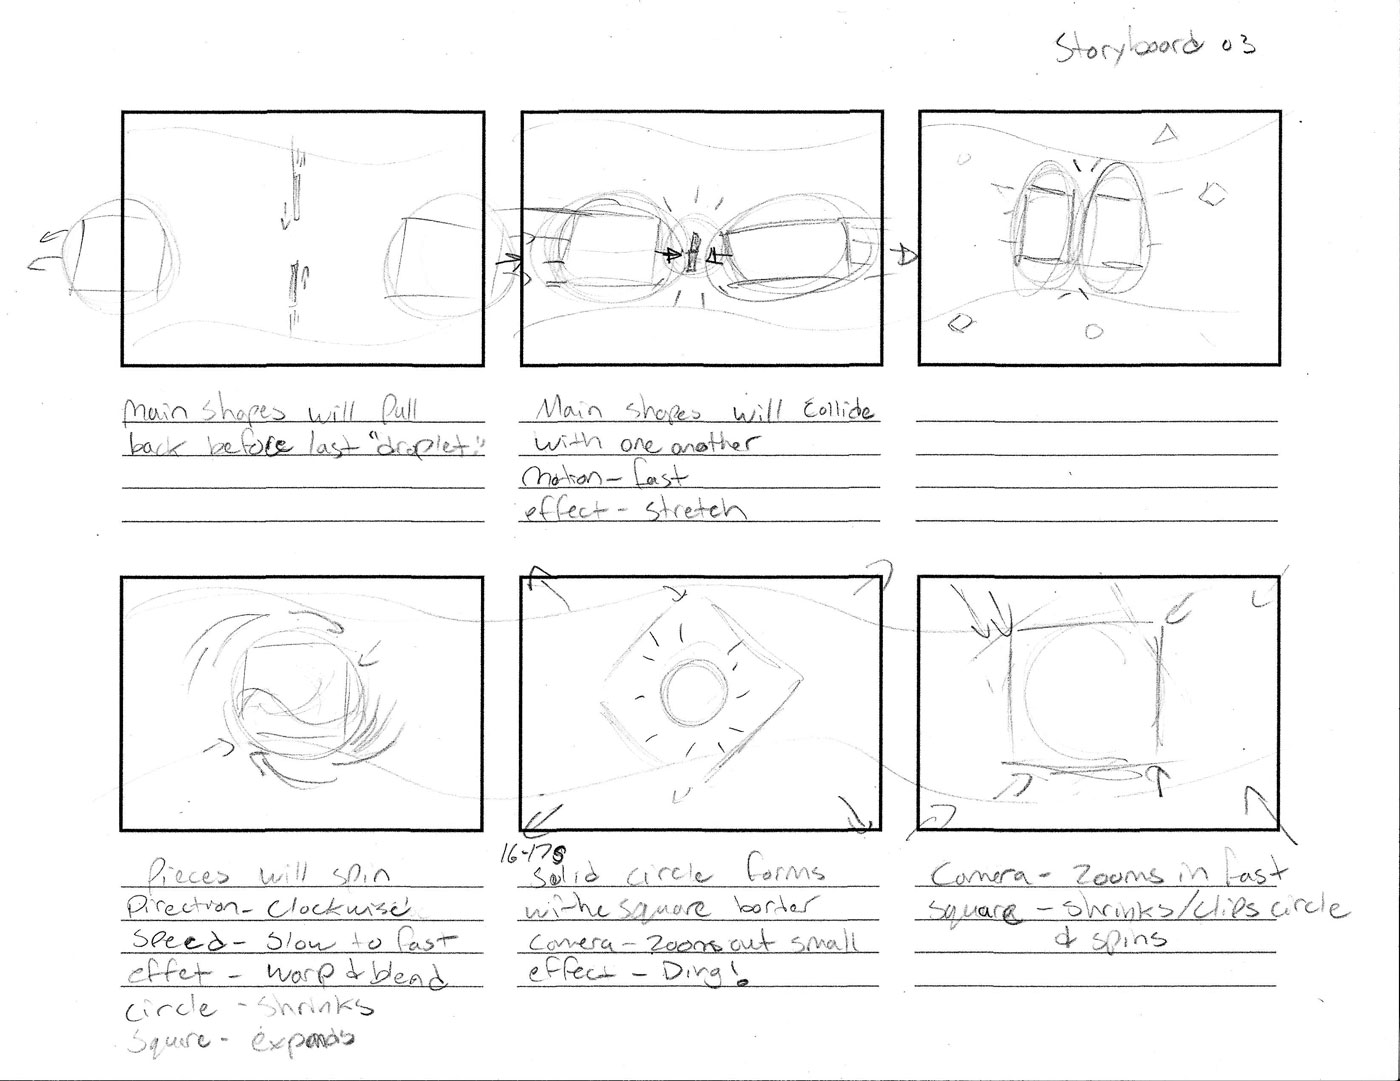 Storyboard 03
Main shapes will Pull
back before last "droplet."
Main shapes will Collide
with one another
Motion - fast
effect - stretch
Pieces will spin
Direction - Clockwise
Speed - Slow to fast
effet - warp & blend
circle - shrinks
Squire - expands
16-17s
Solid circle forms
withe square border
Camera - Zooms out small
effect - Ding!
Camera - Zooms in fast
Square - shrinks/clips circle
& spins